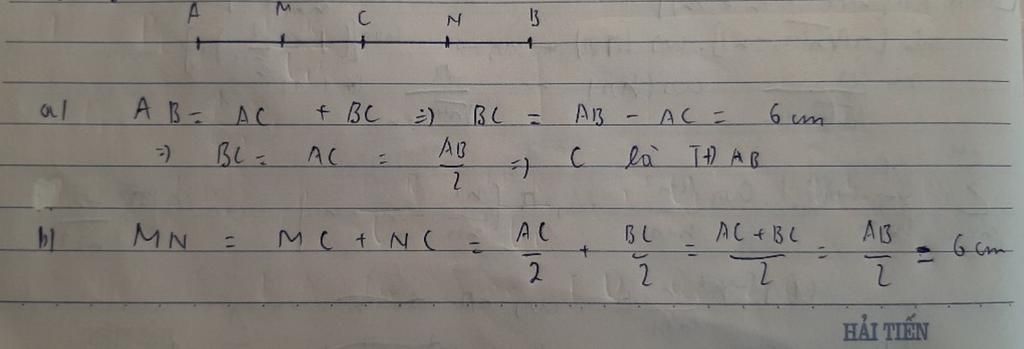 A M C N B
a) AB = AC + BC => BC = AB - AC = 6 cm
=> BC = AC = AB/2 => C là TĐ AB
b) MN = MC + NC = AC/2 + BC/2 = (AC + BC)/2 = AB/2 = 6 cm
HẢI TIẾN